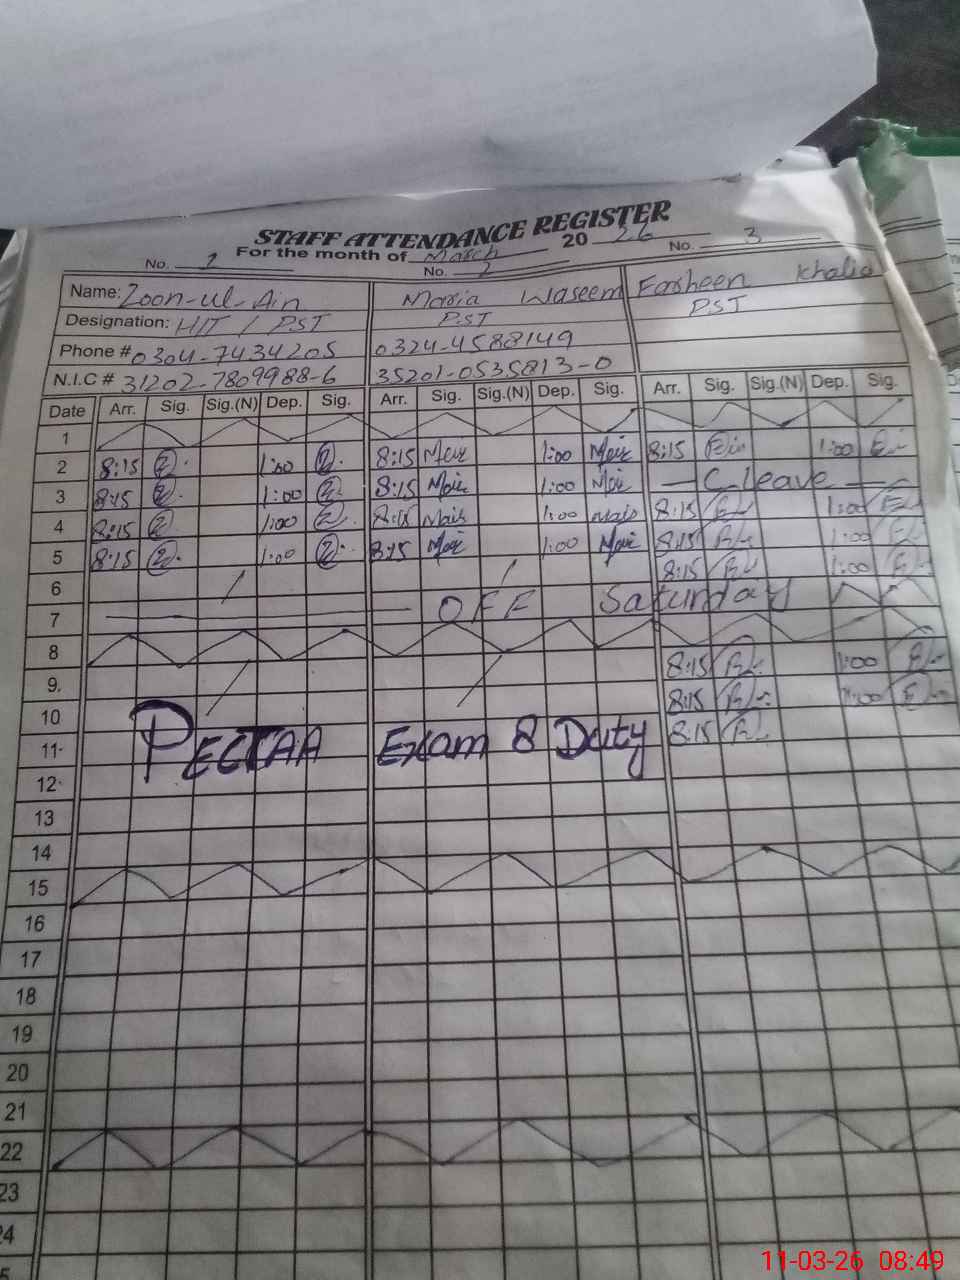 STAFF ATTENDANCE REGISTER
For the month of March 2026
No. 1 No. 2 No. 3
Name: Zoon-ul-Ain Maria Waseem Farheen Khalid
Designation: HIT / PST PST PST
Phone # 0304-7434205 0324-4588149
N.I.C # 31202-7809988-6 35201-0535813-0
Date Arr. Sig. Sig.(N) Dep. Sig. Arr. Sig. Sig.(N) Dep. Sig. Arr. Sig. Sig.(N) Dep. Sig.
1
2 8:15 1:00 8:15 1:00 8:15 1:00
3 8:15 1:00 8:15 1:00 C leave
4 8:15 1:00 8:15 1:00 8:15 1:00
5 8:15 1:00 8:15 1:00 8:15 1:00
6 8:15 1:00
7 OFF Saturday
8
9. 8:15 1:00
10 8:15 1:00
11. PECTAA Exam 8 Duty 8:15
12.
13
14
15
16
17
18
19
20
21
22
23
24
11-03-26 08:49